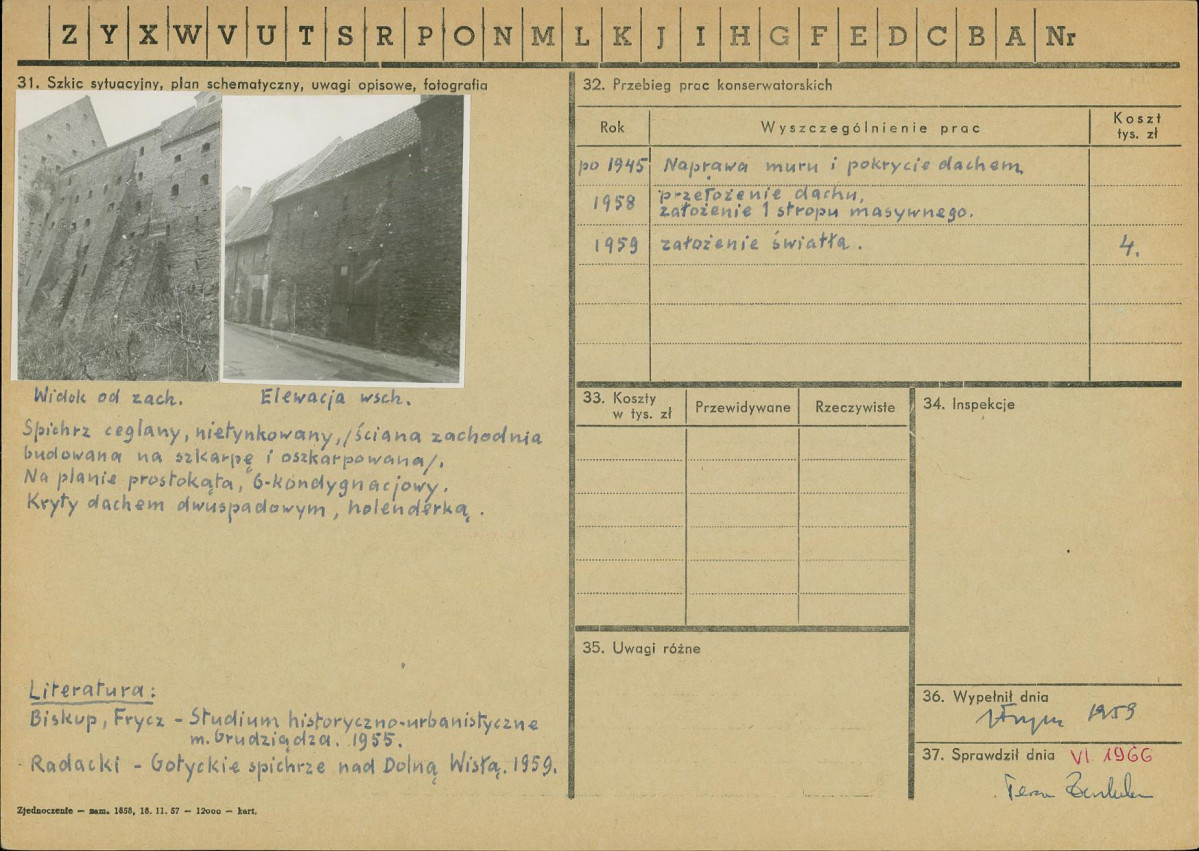 Z Y X W V U T S R P O N M L K J I H G F E D C B A Nr
31. Szkic sytuacyjny, plan schematyczny, uwagi opisowe, fotografia
Widok od zach.
Elewacja wsch.
Spichrz ceglany, nietynkowany, /ściana zachodnia
budowana na szkarpę i oszkarpowana/.
Na planie prostokąta, 6-kondygnacjowy.
Kryty dachem dwuspadowym, holenderką.
Literatura:
Biskup, Frycz - Studium historyczno-urbanistyczne
m. Grudziądza. 1955.
Radacki - Gotyckie spichrze nad Dolną Wisłą. 1959.
Zjednoczenie — zam. 1858, 18. 11. 57 — 12000 — kart.
32. Przebieg prac konserwatorskich
Rok Wyszczególnienie prac Koszt tys. zł
po 1945 Naprawa muru i pokrycie dachem,
1958 przełożenie dachu,
założenie 1 stropu masywnego.
1959 założenie światła. 4.
33. Koszty w tys. zł Przewidywane Rzeczywiste
34. Inspekcje
35. Uwagi różne
36. Wypełnił dnia
1959
37. Sprawdził dnia VI 1966